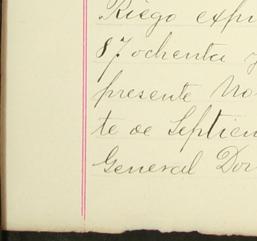 Riego expi
87 ochenta y
presente No
te de Septiem
General Dor